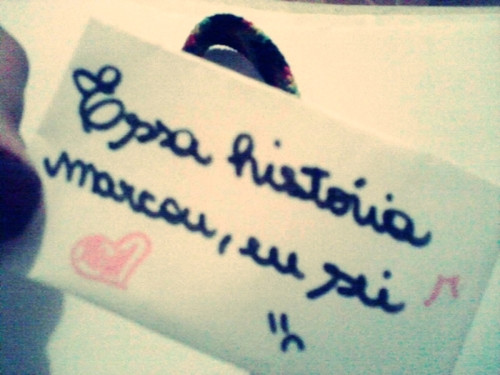 Essa história
marcou, eu sei